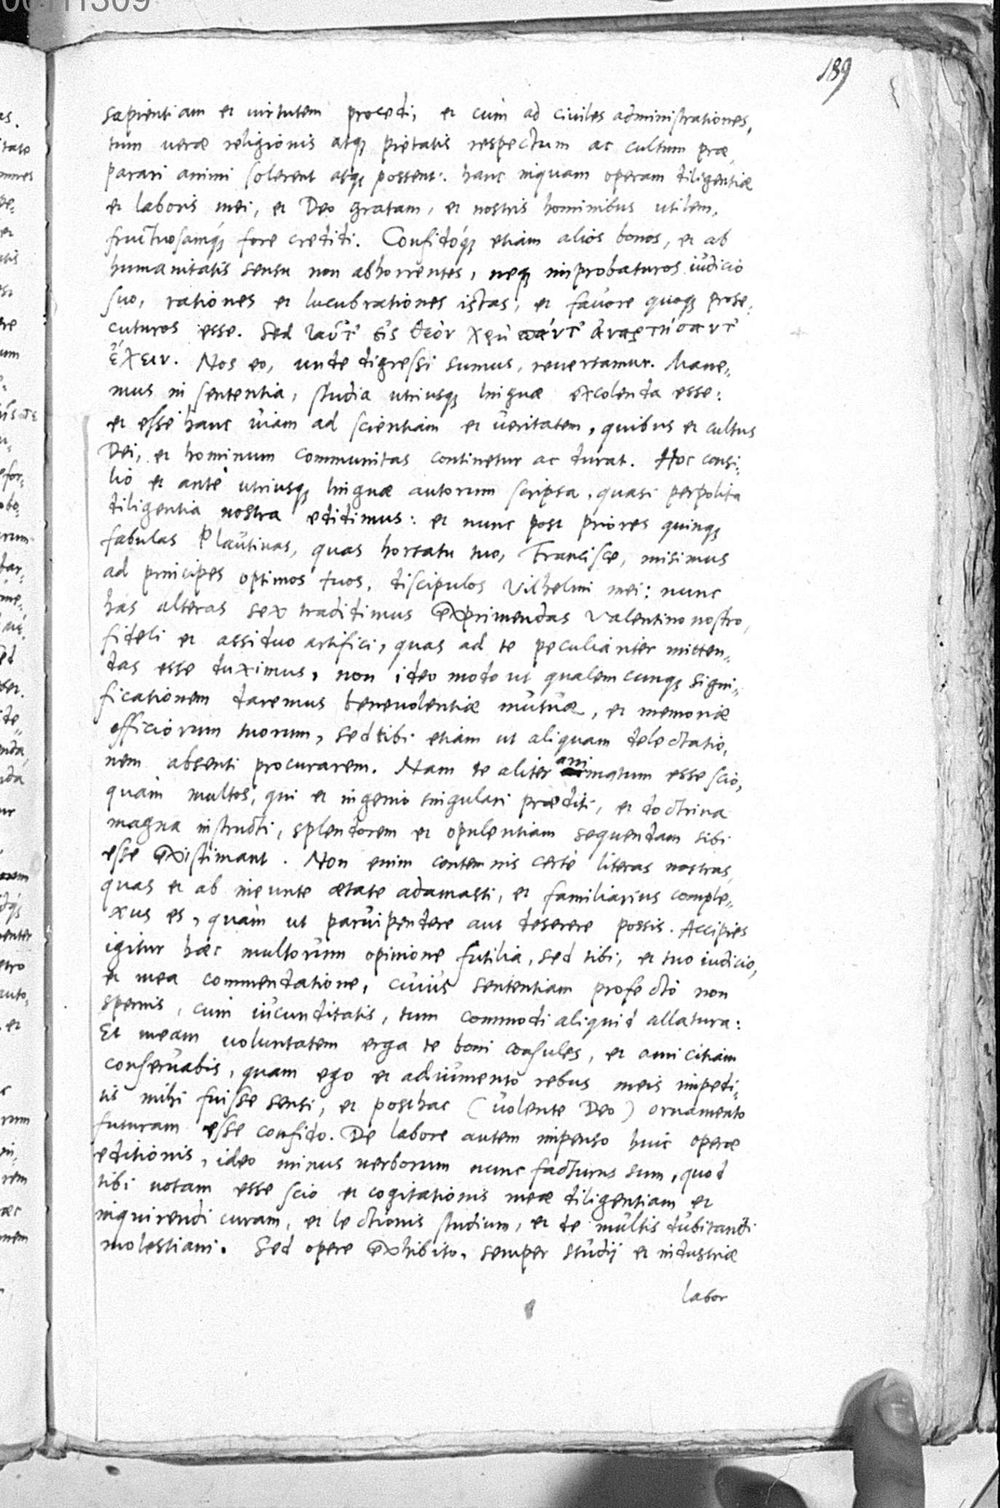 00111309
189
sapientiam et virtutem procedi, et cum ad civiles administrationes,
tum veræ religionis atq; pietatis respectum ac cultum præ„
parari animi solerent atq; possent: hanc inquam operam diligentiæ
et laboris mei, et Deo gratam, et nostris hominibus utilem,
fructuosamq́; fore credidi. Confidoq́; etiam alios bonos, et ab
humanitatis sensu non abhorrentes, neq; improbaturos iudicio
suo, rationes et lucubrationes istas, et favore quoq; prose„
cuturos esse. Sed εἰς θεὸν χρὴ
ἔχειν. Nos eo, unde digressi sumus, revertamur. Mane„
mus in sententia, studia utriusq; linguæ excolenda esse:
et esse hanc viam ad scientiam et veritatem, quibus et cultus
Dei, et hominum communitas continetur ac durat. Hoc consi„
lio et antè utriusq; linguæ autorum scripta, quasi perpolita
diligentia nostra edidimus: et nunc post priores quinq;
fabulas Plautinas, quas hortatu tuo, Francisce, misimus
ad principes optimos tuos, discipulos Vilhelmi mei: nunc
has alteras sex tradidimus exprimendas Valentino nostro,
fideli et assiduo artifici, quas ad te peculiariter mitten„
das esse duximus, non ideo modo ut qualemcunq; signi„
ficationem daremus benevolentiæ mutuæ, et memoriæ
officiorum tuorum, sed tibi etiam ut aliquam delectatio„
nem absenti procurarem. Nam te aliter animatum esse scio,
quàm multos, qui et ingenio singulari præditi, et doctrina
magna instructi, splendorem et opulentiam sequendam sibi
esse existimant. Non enim contemnis certè literas nostras,
quas et ab ineunte ætate adamasti, et familiarius comple„
xus es, quàm ut parvipendere aut deserere possis. Accipies
igitur hæc multorum opinione futilia, sed tibi, et tuo iudicio,
et mea commendatione, cuius sententiam profectò non
spernis, cùm iucunditatis, tum commodi aliquid allatura:
Et meam voluntatem erga te boni consules, et amicitiam
conservabis, quam ego et adiumentò rebus meis impedi„
tis mihi fuisse sensi, et posthac (volente Deo) ornamento
futuram esse confido. De labore autem impenso huic operæ
editionis, ideo minus verborum nunc facturus sum, quod
tibi notam esse scio et cogitationis meæ diligentiam et
inquirendi curam, et lectionis studium, et de multis dubitandi
molestiam. Sed opere exhibito, semper studij et industriæ
labor